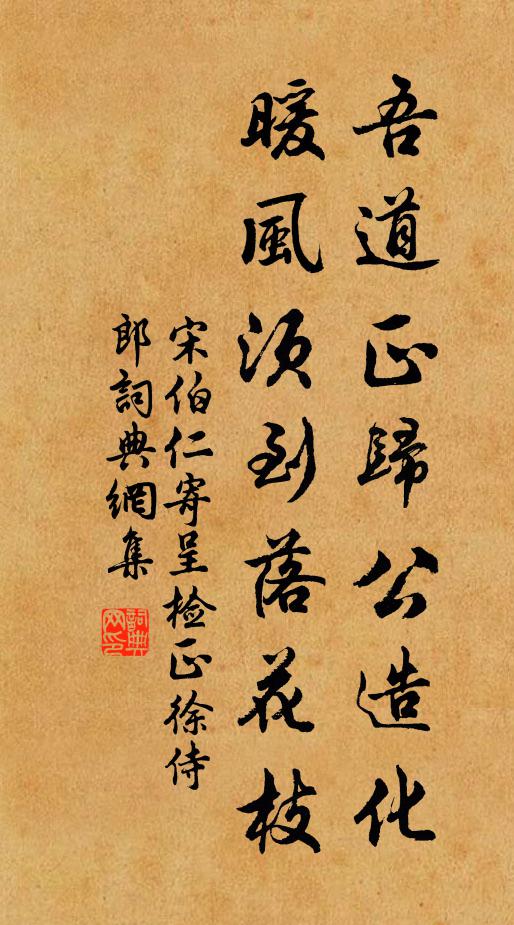 吾道正歸公造化
暖風須到落花枝
宋伯仁寄呈检正徐侍
郎詞典網集
詞典网印